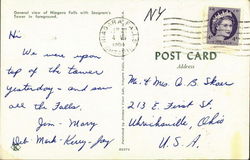 General view of Niagara Falls with Seagram's
Tower in foreground.
NY
Hi
We were upon
top of the tower
yesterday - and saw
all the Falls.
Jim - Mary
Deb Mark - Kerry - Jay
POST CARD
Address
Mr. & Mrs. O B. Skaer
213 E. First St.
Uhrichsville, Ohio
U. S. A.